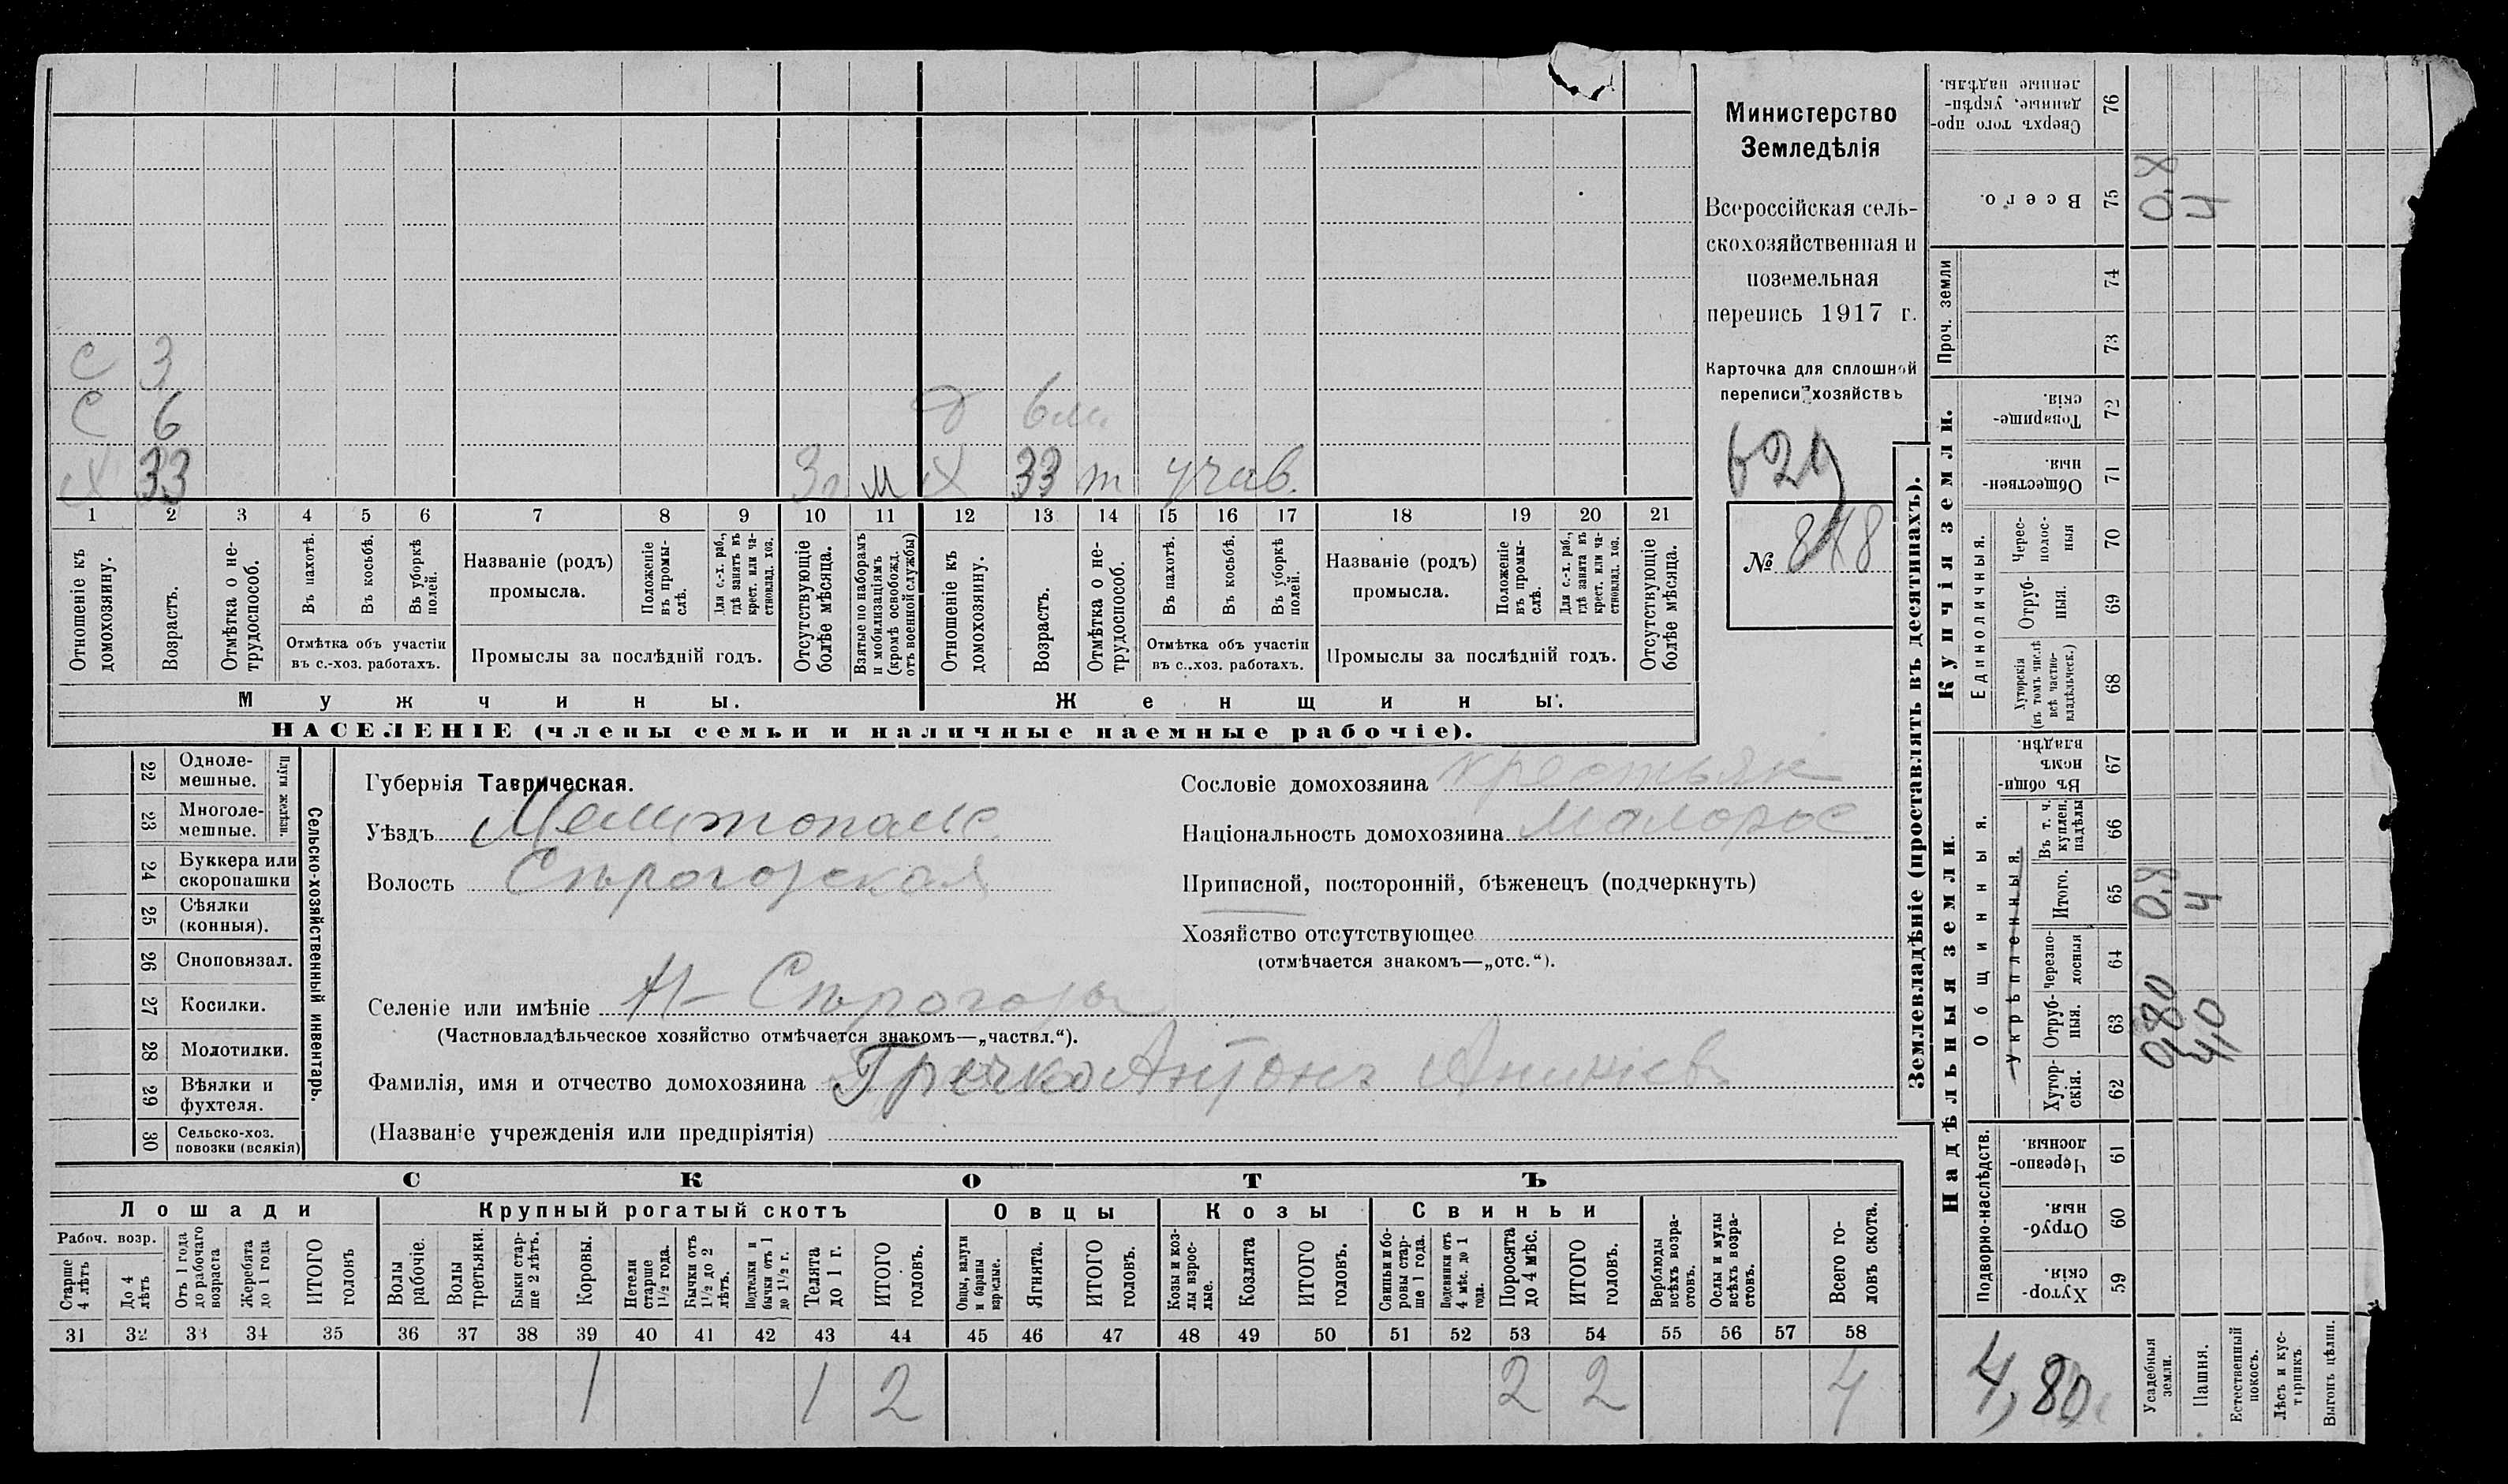 С 3
С 6 д 6 м.
Х 33 3 г м Х 33 т учав.
1 2 3 4 5 6 7 8 9 10 11 12 13 14 15 16 17 18 19 20 21
Отношеніе къ домохозяину.
Возрастъ.
Отмѣтка о не-трудоспособ.
Въ пахотѣ.
Въ косьбѣ.
Въ уборкѣ полей.
Отмѣтка объ участіи
въ с.-хоз. работахъ.
Названіе (родъ)
промысла.
Положеніе въ промы-слѣ.
Для с.-х. раб., гдѣ занятъ въ крест. или ча-стновлад. хоз.
Промыслы за послѣдній годъ.
Отсутствующіе болѣе мѣсяца.
Взятые по наборамъ и мобилизаціямъ (кромѣ освобожд. отъ военной службы)
Отношеніе къ домохозяину.
Возрастъ.
Отмѣтка о не-трудоспособ.
Въ пахотѣ.
Въ косьбѣ.
Въ уборкѣ полей.
Отмѣтка объ участіи
въ с..хоз. работахъ.
Названіе (родъ)
промысла.
Положеніе въ промы-слѣ.
Для с.-х. раб., гдѣ занята въ крест. или ча-стновлад. хоз.
Промыслы за послѣдній годъ.
Отсутствующіе болѣе мѣсяца.
Мужчины.
Женщины.
НАСЕЛЕНІЕ (члены семьи и наличные наемные рабочіе).
Министерство
Земледѣлія
Всероссійская сель-
скохозяйственная и
поземельная
перепись 1917 г.
Карточка для сплошной
переписи хозяйствъ
629
№ 848
22 Одноле-
мешные.
23 Многоле-
мешные.
Плуги желѣзн.
24 Буккера или
скоропашки
25 Сѣялки
(конныя).
26 Сноповязал.
27 Косилки.
28 Молотилки.
29 Вѣялки и
фухтеля.
30 Сельско-хоз.
повозки (всякія)
Сельско-хозяйственный инвентарь.
Губернія Таврическая.
Уѣздъ Мелитопольс.
Волость Сѣрогозская
Селеніе или имѣніе Н-Сѣрогозы
(Частновладѣльческое хозяйство отмѣчается знакомъ—„частвл.“).
Фамилія, имя и отчество домохозяина Гречко Антонъ Ананіевъ
(Названіе учрежденія или предпріятія)
Сословіе домохозяина крестьян
Національность домохозяина малорос
Приписной, посторонній, бѣженецъ (подчеркнуть)
Хозяйство отсутствующее
(отмѣчается знакомъ—„отс.“).
СКОТЪ
Лошади
Крупный рогатый скотъ
Овцы
Козы
Свиньи
Рабоч. возр.
Старше 4 лѣтъ
До 4 лѣтъ
Отъ 1 года до рабочаго возраста
Жеребята до 1 года
ИТОГО головъ
Волы рабочіе.
Волы третьяки.
Быки стар-ше 2 лѣтъ.
Коровы.
Нетели старше 1½ года.
Бычки отъ 1½ до 2 лѣтъ.
Подтелки и бычки отъ 1 до 1½ г.
Телята до 1 г.
ИТОГО головъ.
Овцы, валухи и бараны взрослые.
Ягнята.
ИТОГО головъ.
Козы и коз-лы взрос-лые.
Козлята
ИТОГО головъ.
Свиньи и бо-ровы стар-ше 1 года.
Подсвинки отъ 4 мѣс. до 1 года.
Поросята до 4 мѣс.
ИТОГО головъ.
Верблюды всѣхъ возра-стовъ.
Ослы и мулы всѣхъ возра-стовъ.
Всего го-ловъ скота.
31 32 33 34 35 36 37 38 39 40 41 42 43 44 45 46 47 48 49 50 51 52 53 54 55 56 57 58
1 1 2 2 2 4
Землевладѣніе (проставлять въ десятинахъ).
Купчія земли.
Надѣльныя земли.
Сверхъ того про-данные, укрѣп-ленные надѣлы. 76
Всего. 75 0,8 4
Проч. земли
74
73
Товарище-скія. 72
Обществен-ныя. 71
Единоличныя.
Черес-полос-ныя 70
Отруб-ныя. 69
Хуторскія (въ томъ числѣ всѣ частно-владѣльческ.) 68
Общинныя.
Въ общи-номъ владѣн. 67
Укрѣпленныя.
Въ т. ч. куплен. надѣлы 66
Итого. 65 0,8 4
Черезпо-лосныя 64
Отруб-ныя. 63 0,80 4,0
Хутор-скія. 62
Подворно-наслѣдств.
Черезпо-лосныя. 61
Отруб-ныя. 60
Хутор-скія. 59
4,80
Усадебныя земли.
Пашня.
Естественный покосъ.
Лѣсъ и кус-тарникъ.
Выгонъ цѣлин.